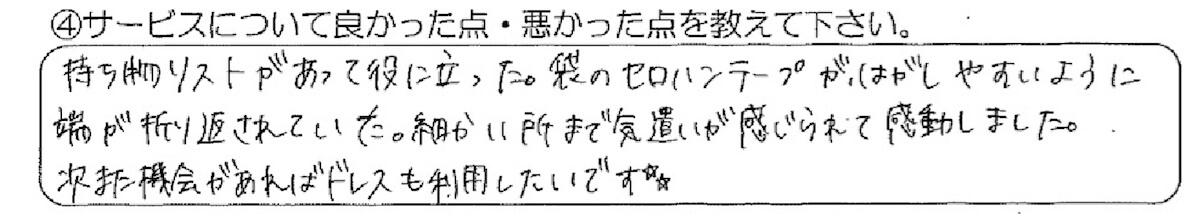 ④サービスについて良かった点・悪かった点を教えて下さい。
持ち物リストがあって役に立った。袋のセロハンテープが、はがしやすいように
端が折り返されていた。細かい所まで気遣いが感じられて感動しました。
次また機会があればドレスも利用したいです☆☆